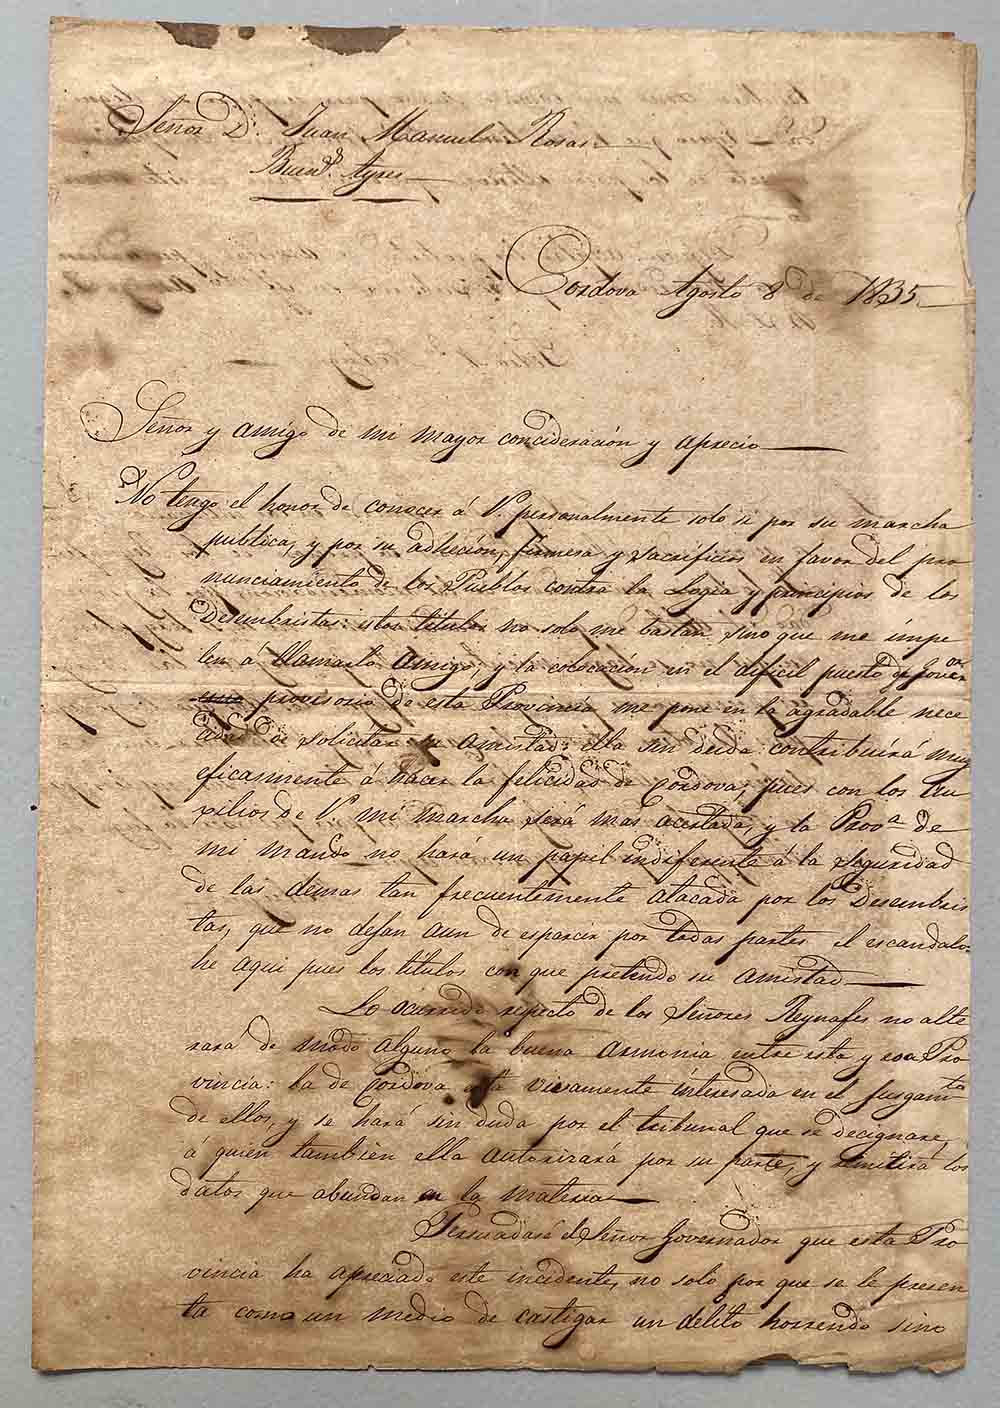 Señor Dn. Juan Manuel Rosas
Buens. Ayres
Cordova Agosto 8 de 1835
Señor y amigo de mi mayor concideración y aprecio
No tengo el honor de conocer á V. personalmente solo si por su marcha
publica, y por su adheción, firmesa y sacrificios en favor del pro
nunciamiento de los Pueblos contra la Logia y principios de los
Desembristas: estos titulos no solo me bastan sino que me ímpe
len á llamarlo amigo; y la colocación en el dificil puesto de Gover
provisorio de esta Provincia me pone en la agradable nece
cidad de solicitar su amistad: ella sin duda contribuirá muy
eficasmente á hacer la felicidad de Cordova; pues con los au
xilios de V. mi marcha será mas acertada, y la Prova. de
mi mando no hará un papel indiferente á la seguridad
de las demas tan frecuentemente atacada por los Desembris
tas, que no dejan aun de esparcir por todas partes el escandalo:
he aqui pues los titulos con que pretendo su amistad
Lo ocurrido respecto de los Señores Reynafes no alte
rará de modo alguno la buena armonia entre esta y esa Pro
vincia: la de Cordova está vivamente ínteresada en el jusgamto.
de ellos, y se hará sin duda por el tribunal que se decignare,
á quien tambien ella autorizará por su parte, y remitirá los
datos que abundan en la materia
Persuadase el Señor Governador que esta Pro
vincia ha apreciado este incidente, no solo por que se le presen
ta como un medio de castigar un delito horrendo sino